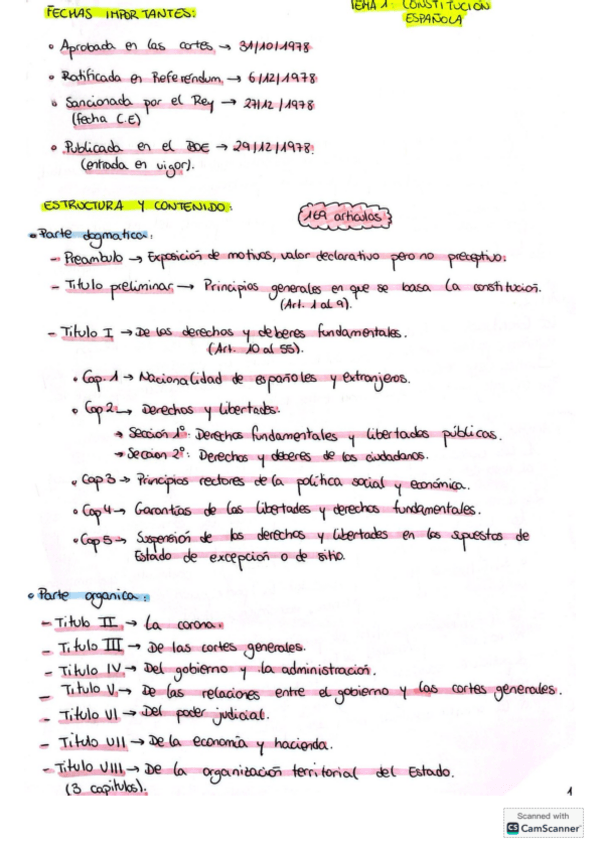 TEMA 1: CONSTITUCIÓN
ESPAÑOLA
FECHAS IMPORTANTES:
• Aprobada en las cortes → 31/10/1978
• Ratificada en Referéndum → 6/12/1978
• Sancionada por el Rey → 27/12/1978
(fecha C.E)
• Publicada en el BOE → 29/12/1978.
(entrada en vigor).
ESTRUCTURA Y CONTENIDO:
169 artículos
• Parte dogmatica:
- Preambulo → Exposición de motivos, valor declarativo pero no preceptivo.
- Titulo preliminar → Principios generales en que se basa la constitución.
(Art. 1 al 9).
- Titulo I → De los derechos y deberes fundamentales.
(Art. 10 al 55).
• Cap. 1 → Nacionalidad de españoles y extranjeros.
• Cap 2 → Derechos y libertades:
→ Sección 1º: Derechos fundamentales y libertades públicas.
→ Seccion 2º: Derechos y deberes de los ciudadanos.
• Cap 3 → Principios rectores de la política social y económica.
• Cap 4 → Garantías de las libertades y derechos fundamentales.
• Cap 5 → Suspensión de los derechos y libertades en los supuestos de
Estado de excepción o de sitio.
• Parte organica:
- Titulo II → La corona.
- Titulo III → De las cortes generales.
- Titulo IV → Del gobierno y la administración.
- Titulo V → De las relaciones entre el gobierno y las cortes generales.
- Titulo VI → Del poder judicial.
- Titulo VII → De la economía y hacienda.
- Titulo VIII → De la organización territorial del Estado.
(3 capítulos).
1
Scanned with
CS CamScanner